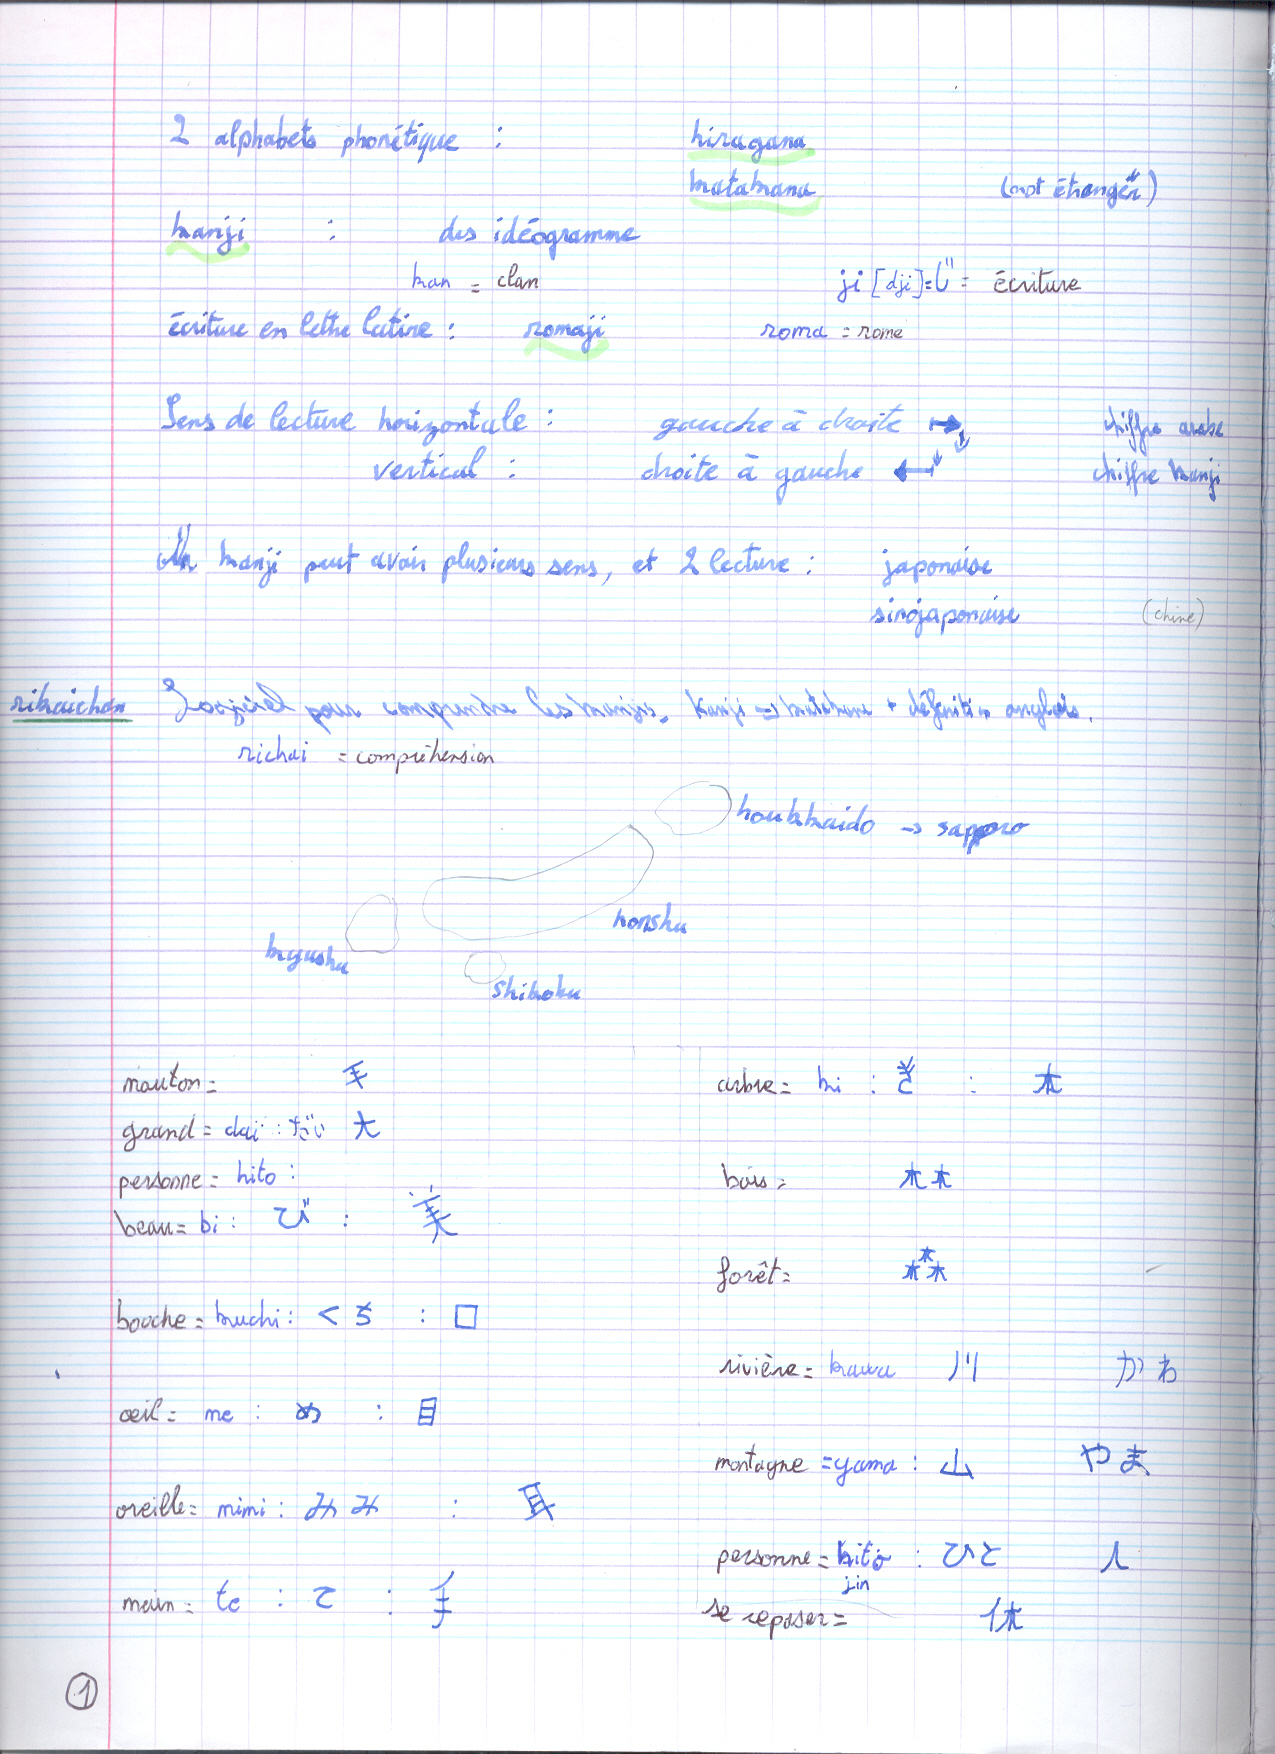 2 alphabets phonétique : hiragana
katakana (mot étranger)
kanji : des idéogramme
kan = clan ji [dji] = じ = écriture
écriture en lettre latine : romaji roma = rome
Sens de lecture horizontale : gauche à droite → ↓ chiffre arabe
vertical : droite à gauche ← ↓ chiffre kanji
Un kanji peut avoir plusieurs sens, et 2 lecture : japonaise
sinojaponaise (chine)
rikaichan Logiciel pour comprendre les kanjis. Kanji => katakana + définition anglais.
richai = compréhension
houkkaido → sapporo
honshu
kyushu
shikoku
mouton =
grand = dai : だい 大
personne = hito :
beau = bi : び : 美
bouche = kuchi : くち : 口
oeil = me : め : 目
oreille = mimi : みみ : 耳
main = te : て : 手
arbre = ki : き : 木
bois = 林
forêt = 森
rivière = kawa 川 かわ
montagne = yama : 山 やま
personne = hito : ひと 人
jin
se reposer = 休
1